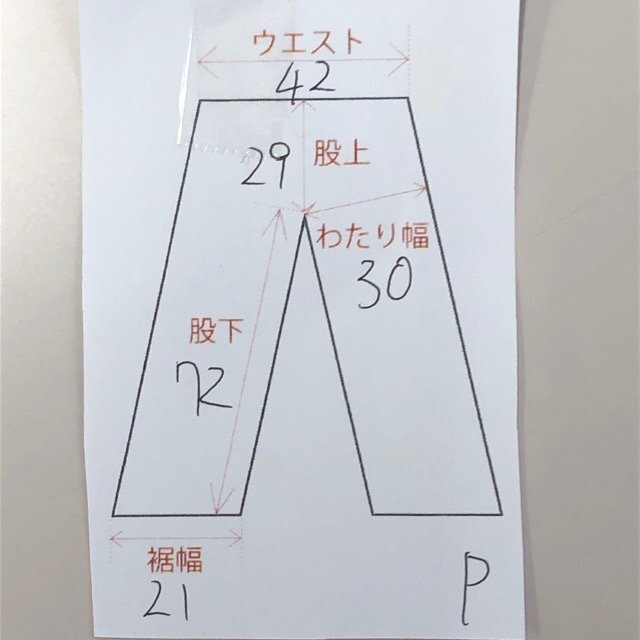 ウエスト
42
29
股上
わたり幅
30
股下
72
裾幅
21
P